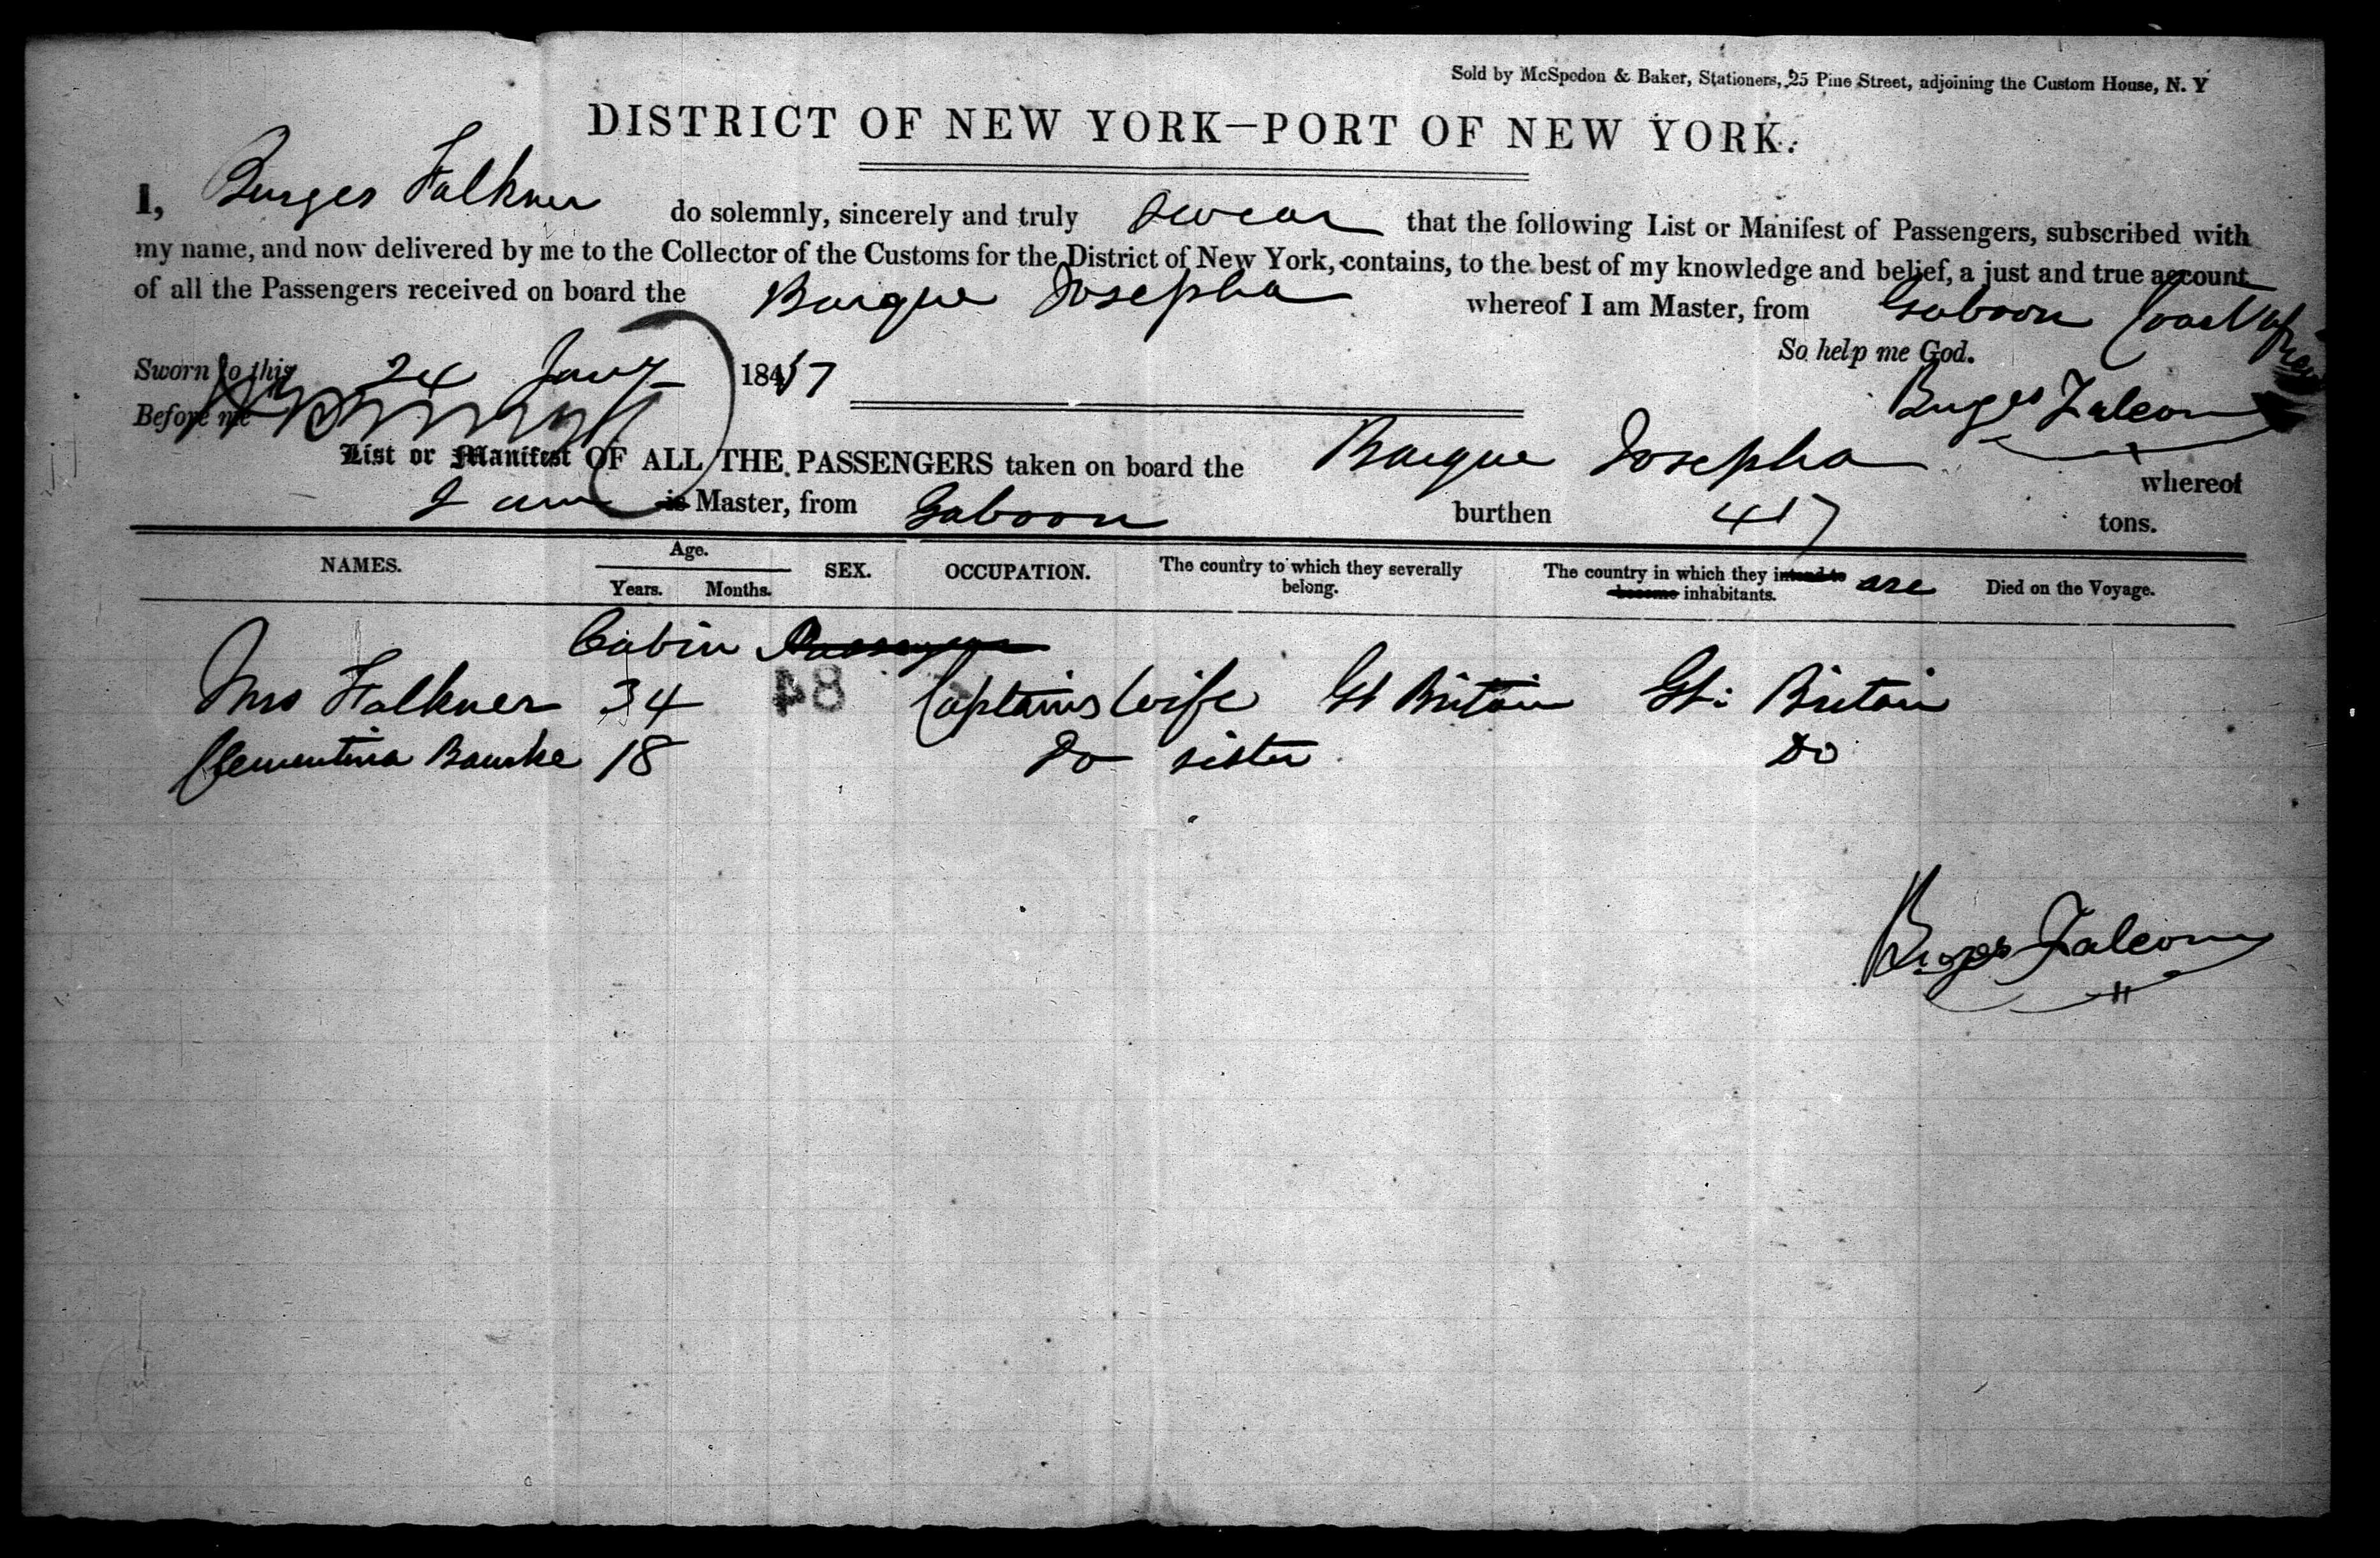 Sold by McSpedon & Baker, Stationers, 25 Pine Street, adjoining the Custom House, N. Y
DISTRICT OF NEW YORK—PORT OF NEW YORK.
I, Burges Falkner do solemnly, sincerely and truly swear that the following List or Manifest of Passengers, subscribed with
my name, and now delivered by me to the Collector of the Customs for the District of New York, contains, to the best of my knowledge and belief, a just and true account
of all the Passengers received on board the Barque Josepha whereof I am Master, from Gaboon Coast of
So help me God.
Sworn to this 24 Jany 1847
Burges Falconer
Before me
List or Manifest OF ALL THE PASSENGERS taken on board the Barque Josepha whereof
I am is Master, from Gaboon burthen 417 tons.
NAMES. Age. Years. Months. SEX. OCCUPATION. The country to which they severally belong. The country in which they intend to become are inhabitants. Died on the Voyage.
Cabin Passengers
Mrs Falkner 34 Captains Wife Gt Britain Gt: Britain
48
Clementina Bourke 18 Do sister Do
Burges Falconer